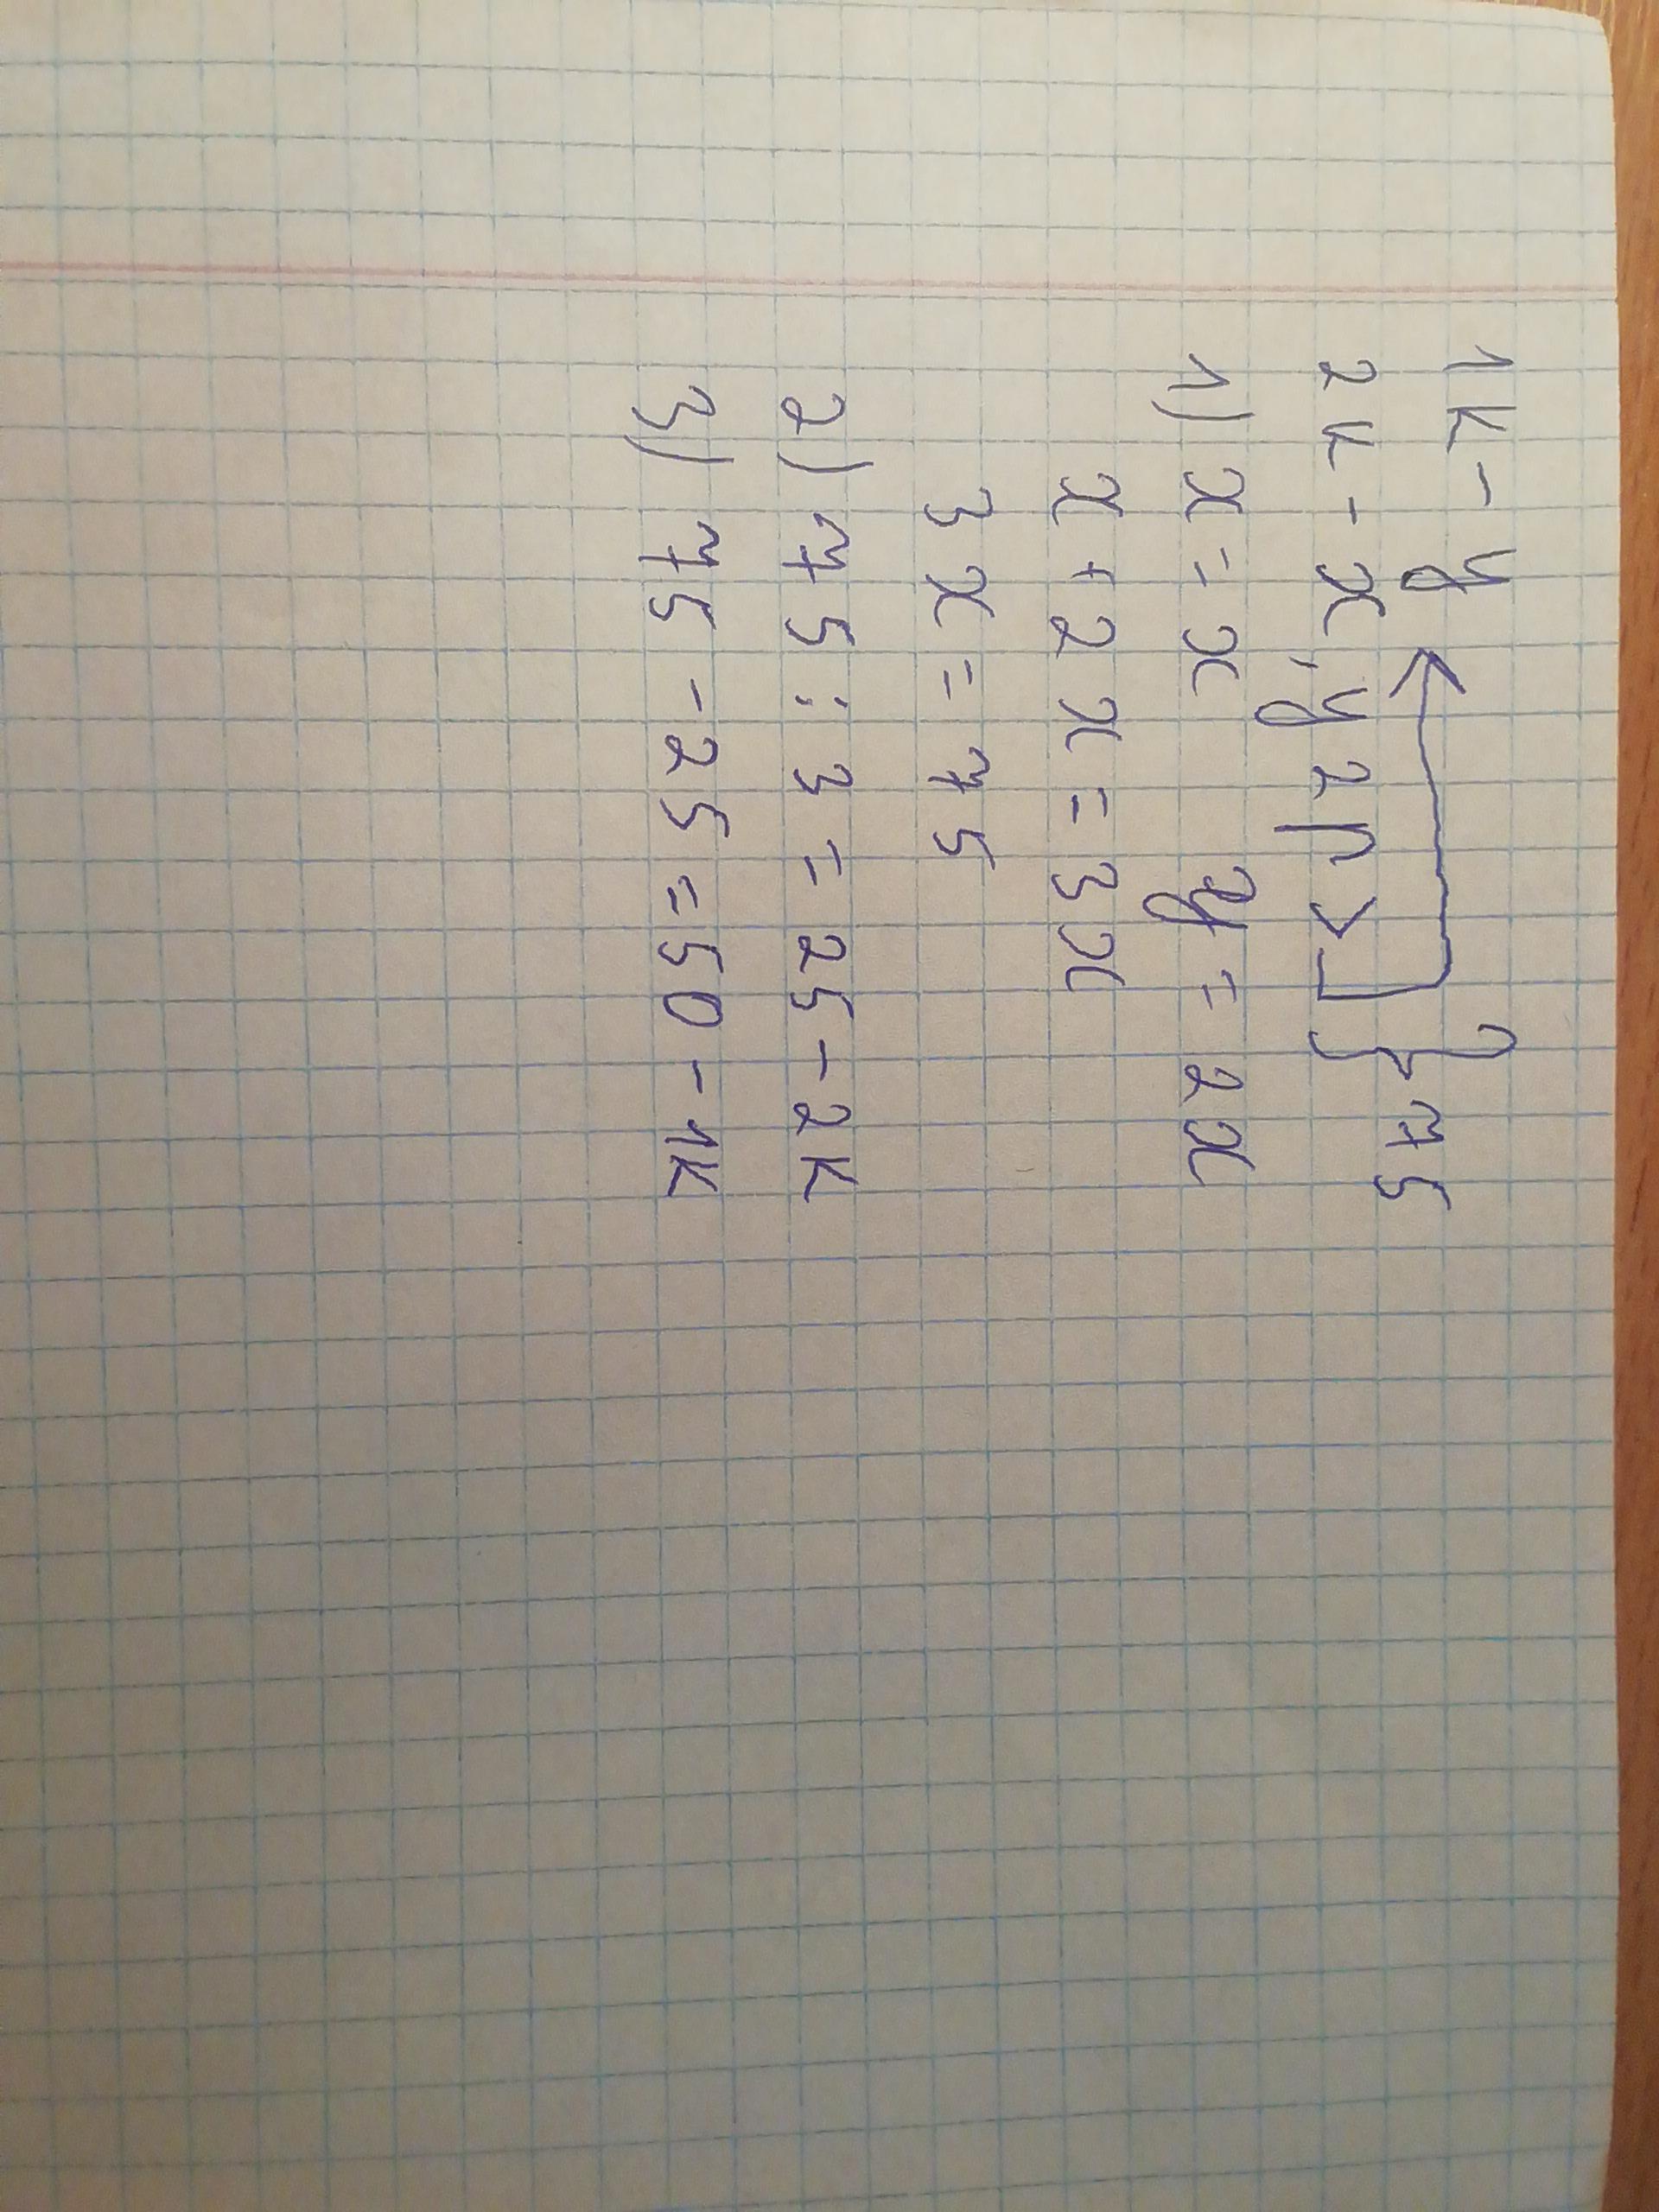 1к - у
2к - х, у 2р > } 75
1) х = х у = 2х
х + 2х = 3х
3х = 75
2) 75 : 3 = 25 - 2к
3) 75 - 25 = 50 - 1к